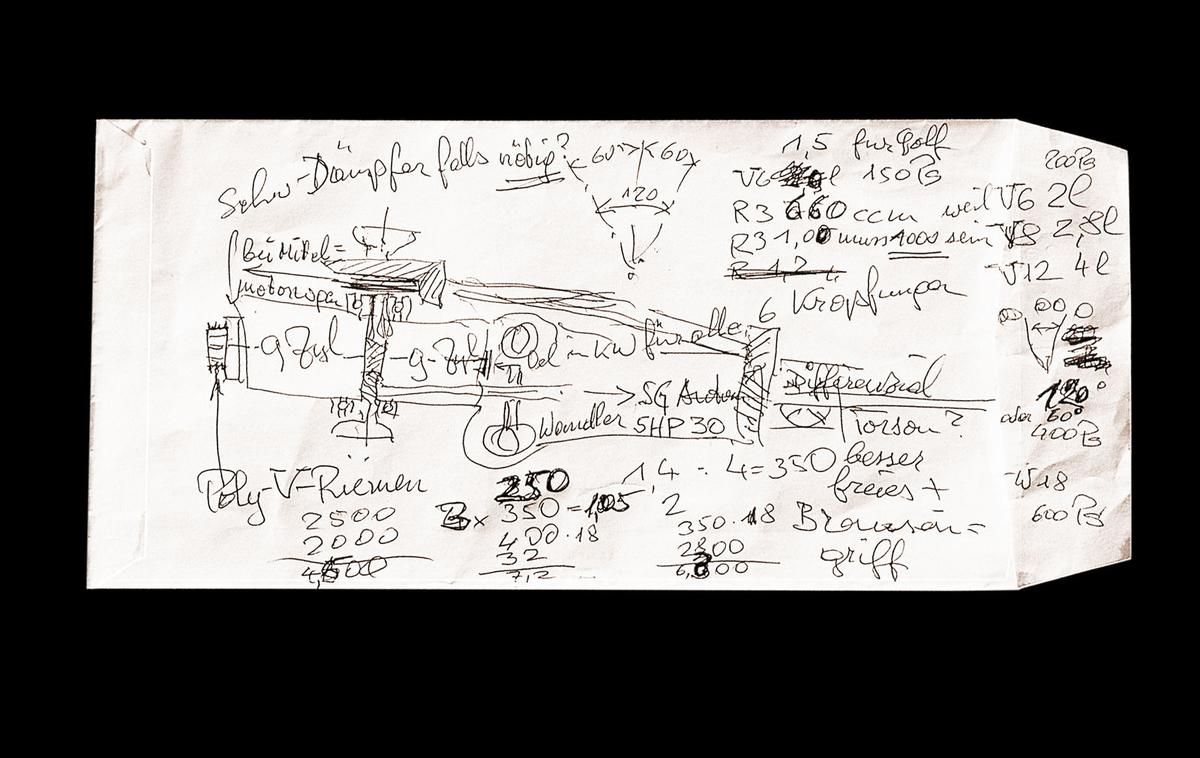 Schw-Dämpfer falls nötig?
60° 60
120
1,5 fur Golf
V6 150 PS
R3 660 ccm weil V6 2l
R3 1,00 muss 1000 sein V8 2,8l
R 1,2
V12 4l
200 PS
6 Kröpfungen
Bei Mittel=
motorwagen
9 Zyl
9-Zyl
Öl in KW für alle
SG
Wandler 5HP30
Differential
Torsen?
120°
oder 60°
400 PS
Poly-V-Riemen
2500
2000
4,500
250
3x 350 = 1,05
400·18
32
7,2
1,4 : 4 = 350 besser
2
350·18
2800
6,300
freies +
griff
W18
600 PS